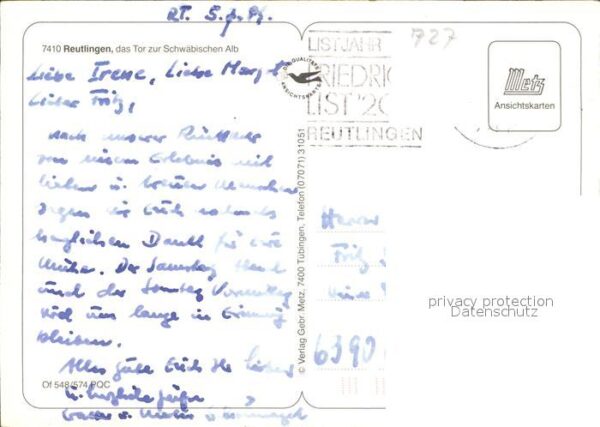 RT. 5.
727
7410 Reutlingen, das Tor zur Schwäbischen Alb
Liebe Irene, Liebe Margot
Lieber Fritz,
nach unserer Rückkehr
von einem Erlebnis mit
lieben u. Menschen
sagen wir Euch nochmals
herzlichen Dank für Eure
Mühe. Der Samstag Abend
und der Sonntag Vormittag
wird uns lange in Erinnerung
bleiben.
Alles gute Euch Ihr Lieben
u. herzliche Grüße
Of 548/574 PQC
DIE QUALITÄTS
ANSICHTSKARTE
LISTJAHR
FRIEDRIC
LIST '20
REUTLINGEN
Metz
Ansichtskarten
© Verlag Gebr. Metz, 7400 Tübingen, Telefon (07071) 31051
Herrn
Fritz
6390
privacy protection
Datenschutz